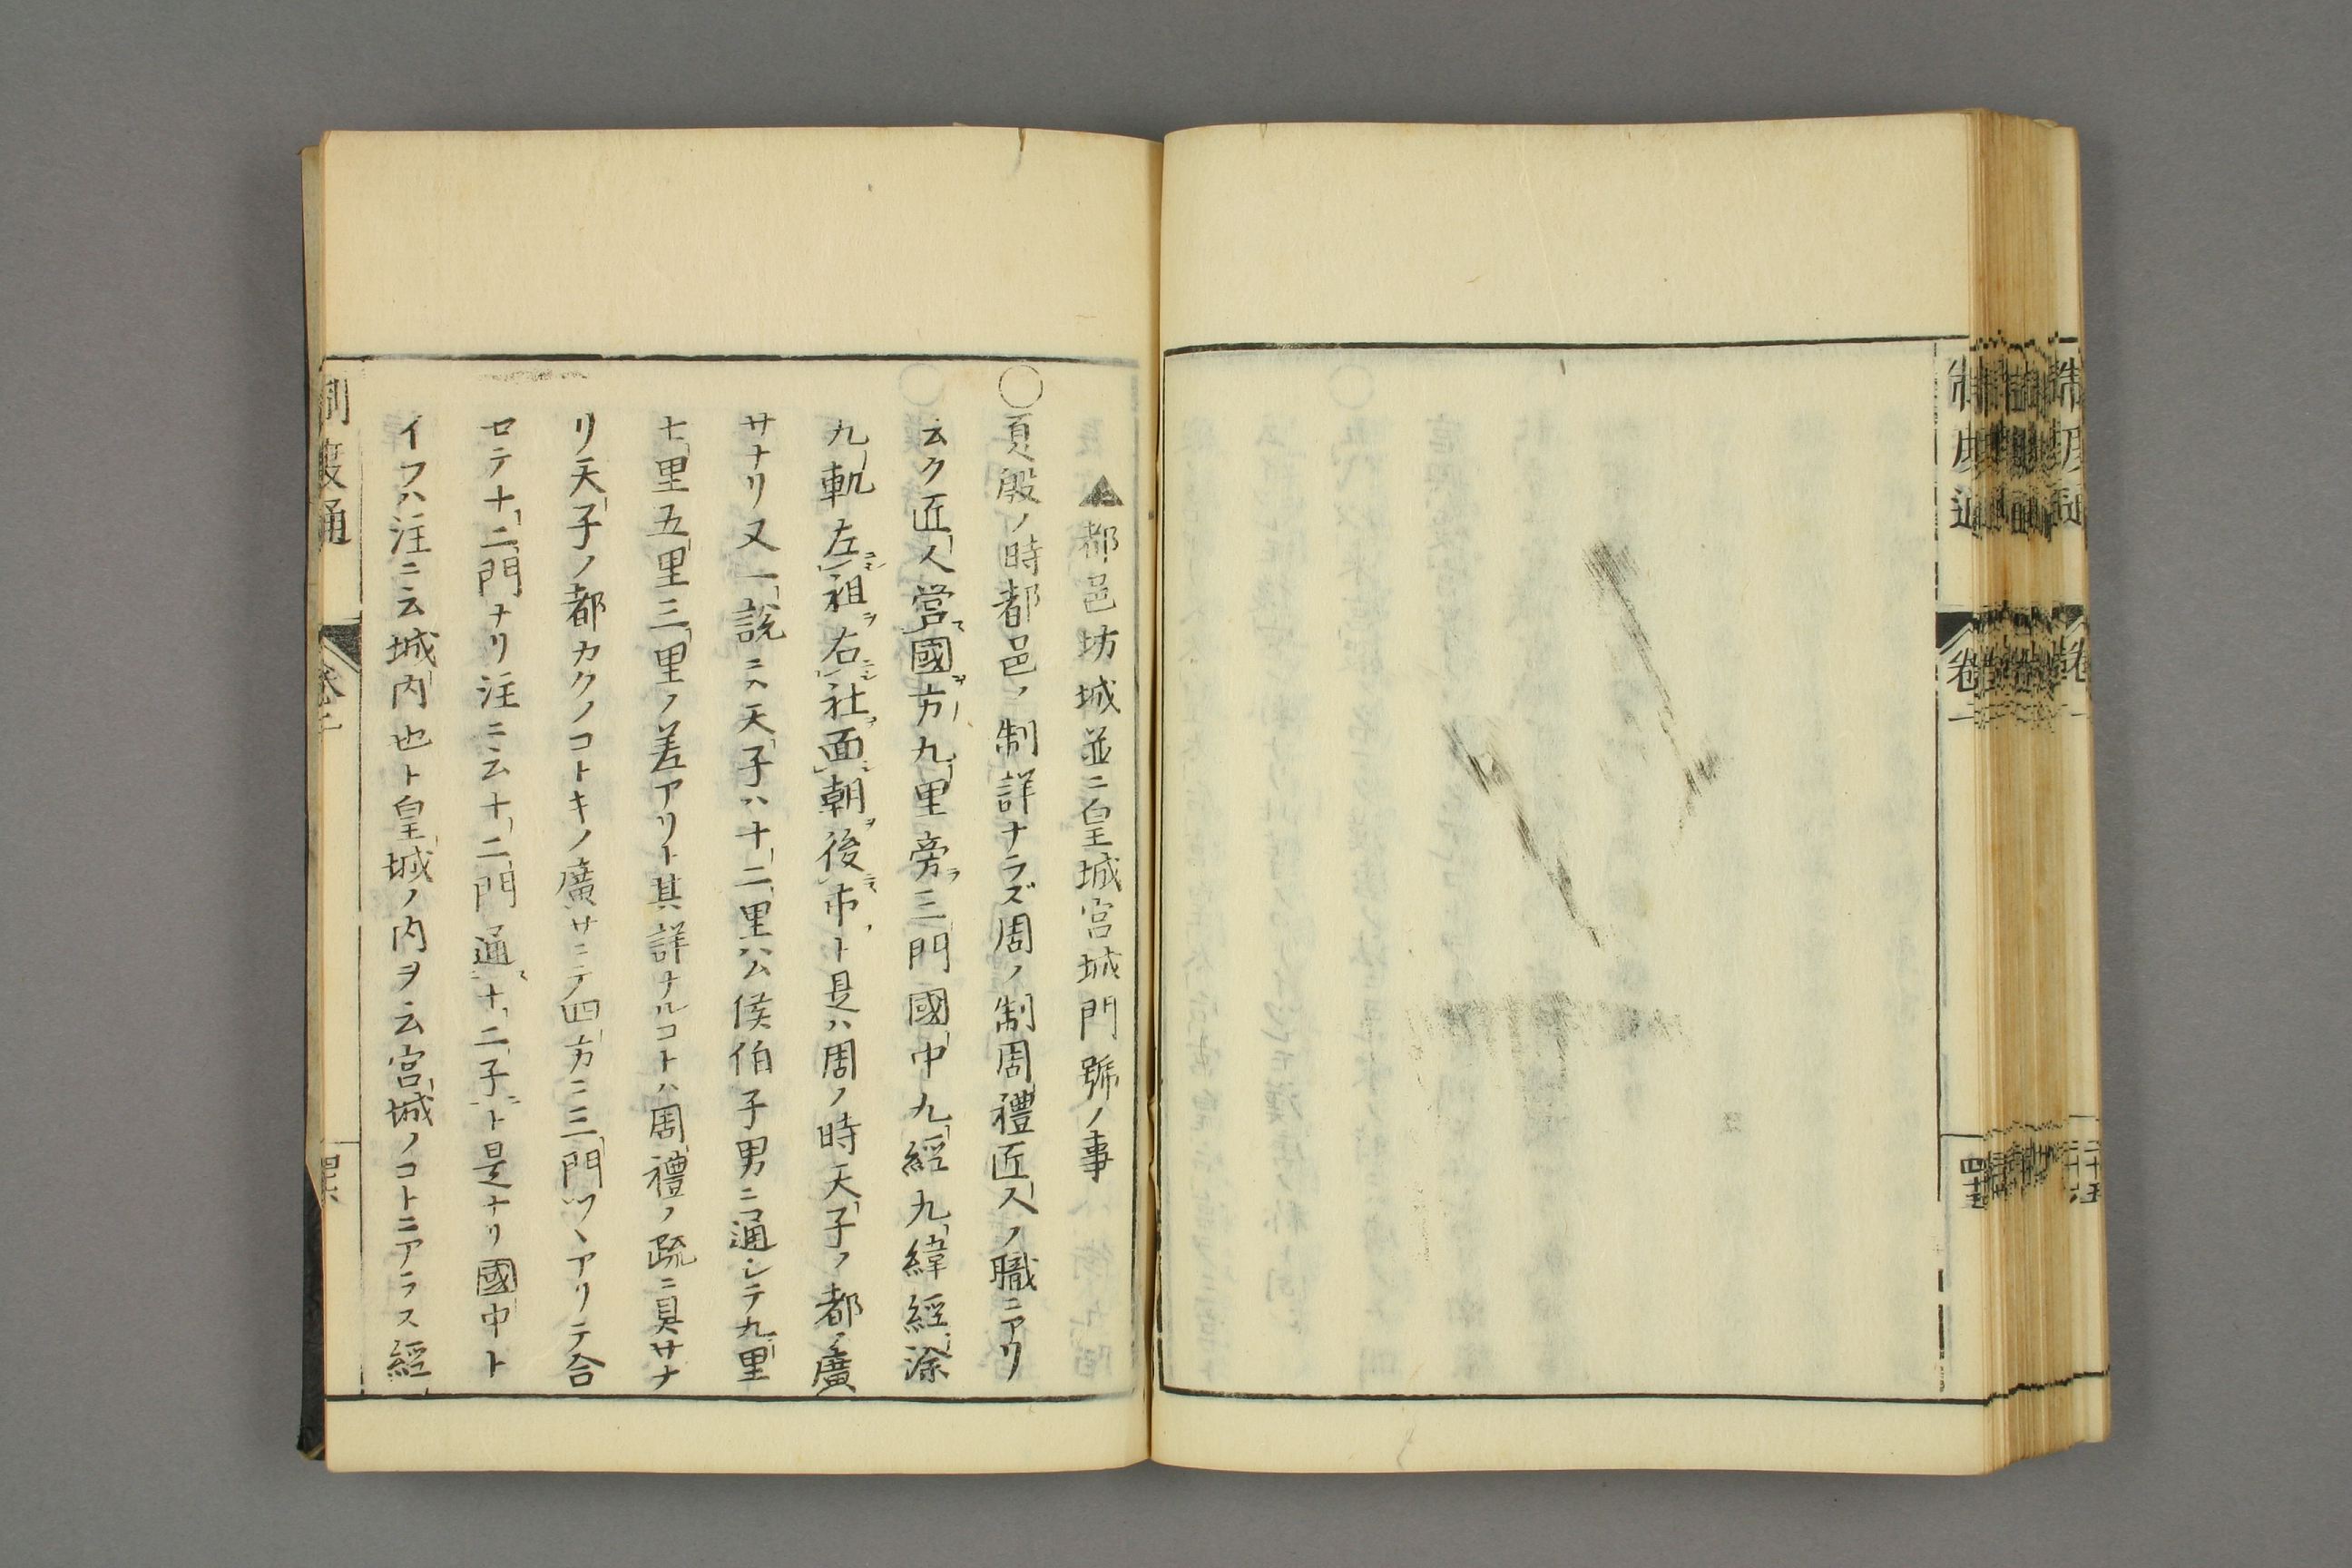 制度通
卷一
四十五
▲都邑坊城並ニ皇城宮城門號ノ事
○夏殷ノ時都邑ノ制詳ナラズ周ノ制周禮匠人ノ職ニアリ
云ク匠人營國方九里旁三門國中九經九緯經涂
九軌左祖右社面朝後市ト是ハ周ノ時天子ノ都ノ廣
サナリ又一說ニハ天子ハ十二里公侯伯子男ニ通シテ九里
七里五里三里ノ差アリト其詳ナルコトハ周禮ノ疏ニ具サナ
リ天子ノ都カクノコトキノ廣サニテ四方ニ三門ツヽアリテ合
セテ十二門ナリ注ニ云十二門通十二子ト是ナリ國中ト
イフハ注ニ云城內也ト皇城ノ內ヲ云宮城ノコトニアラス經
制度通